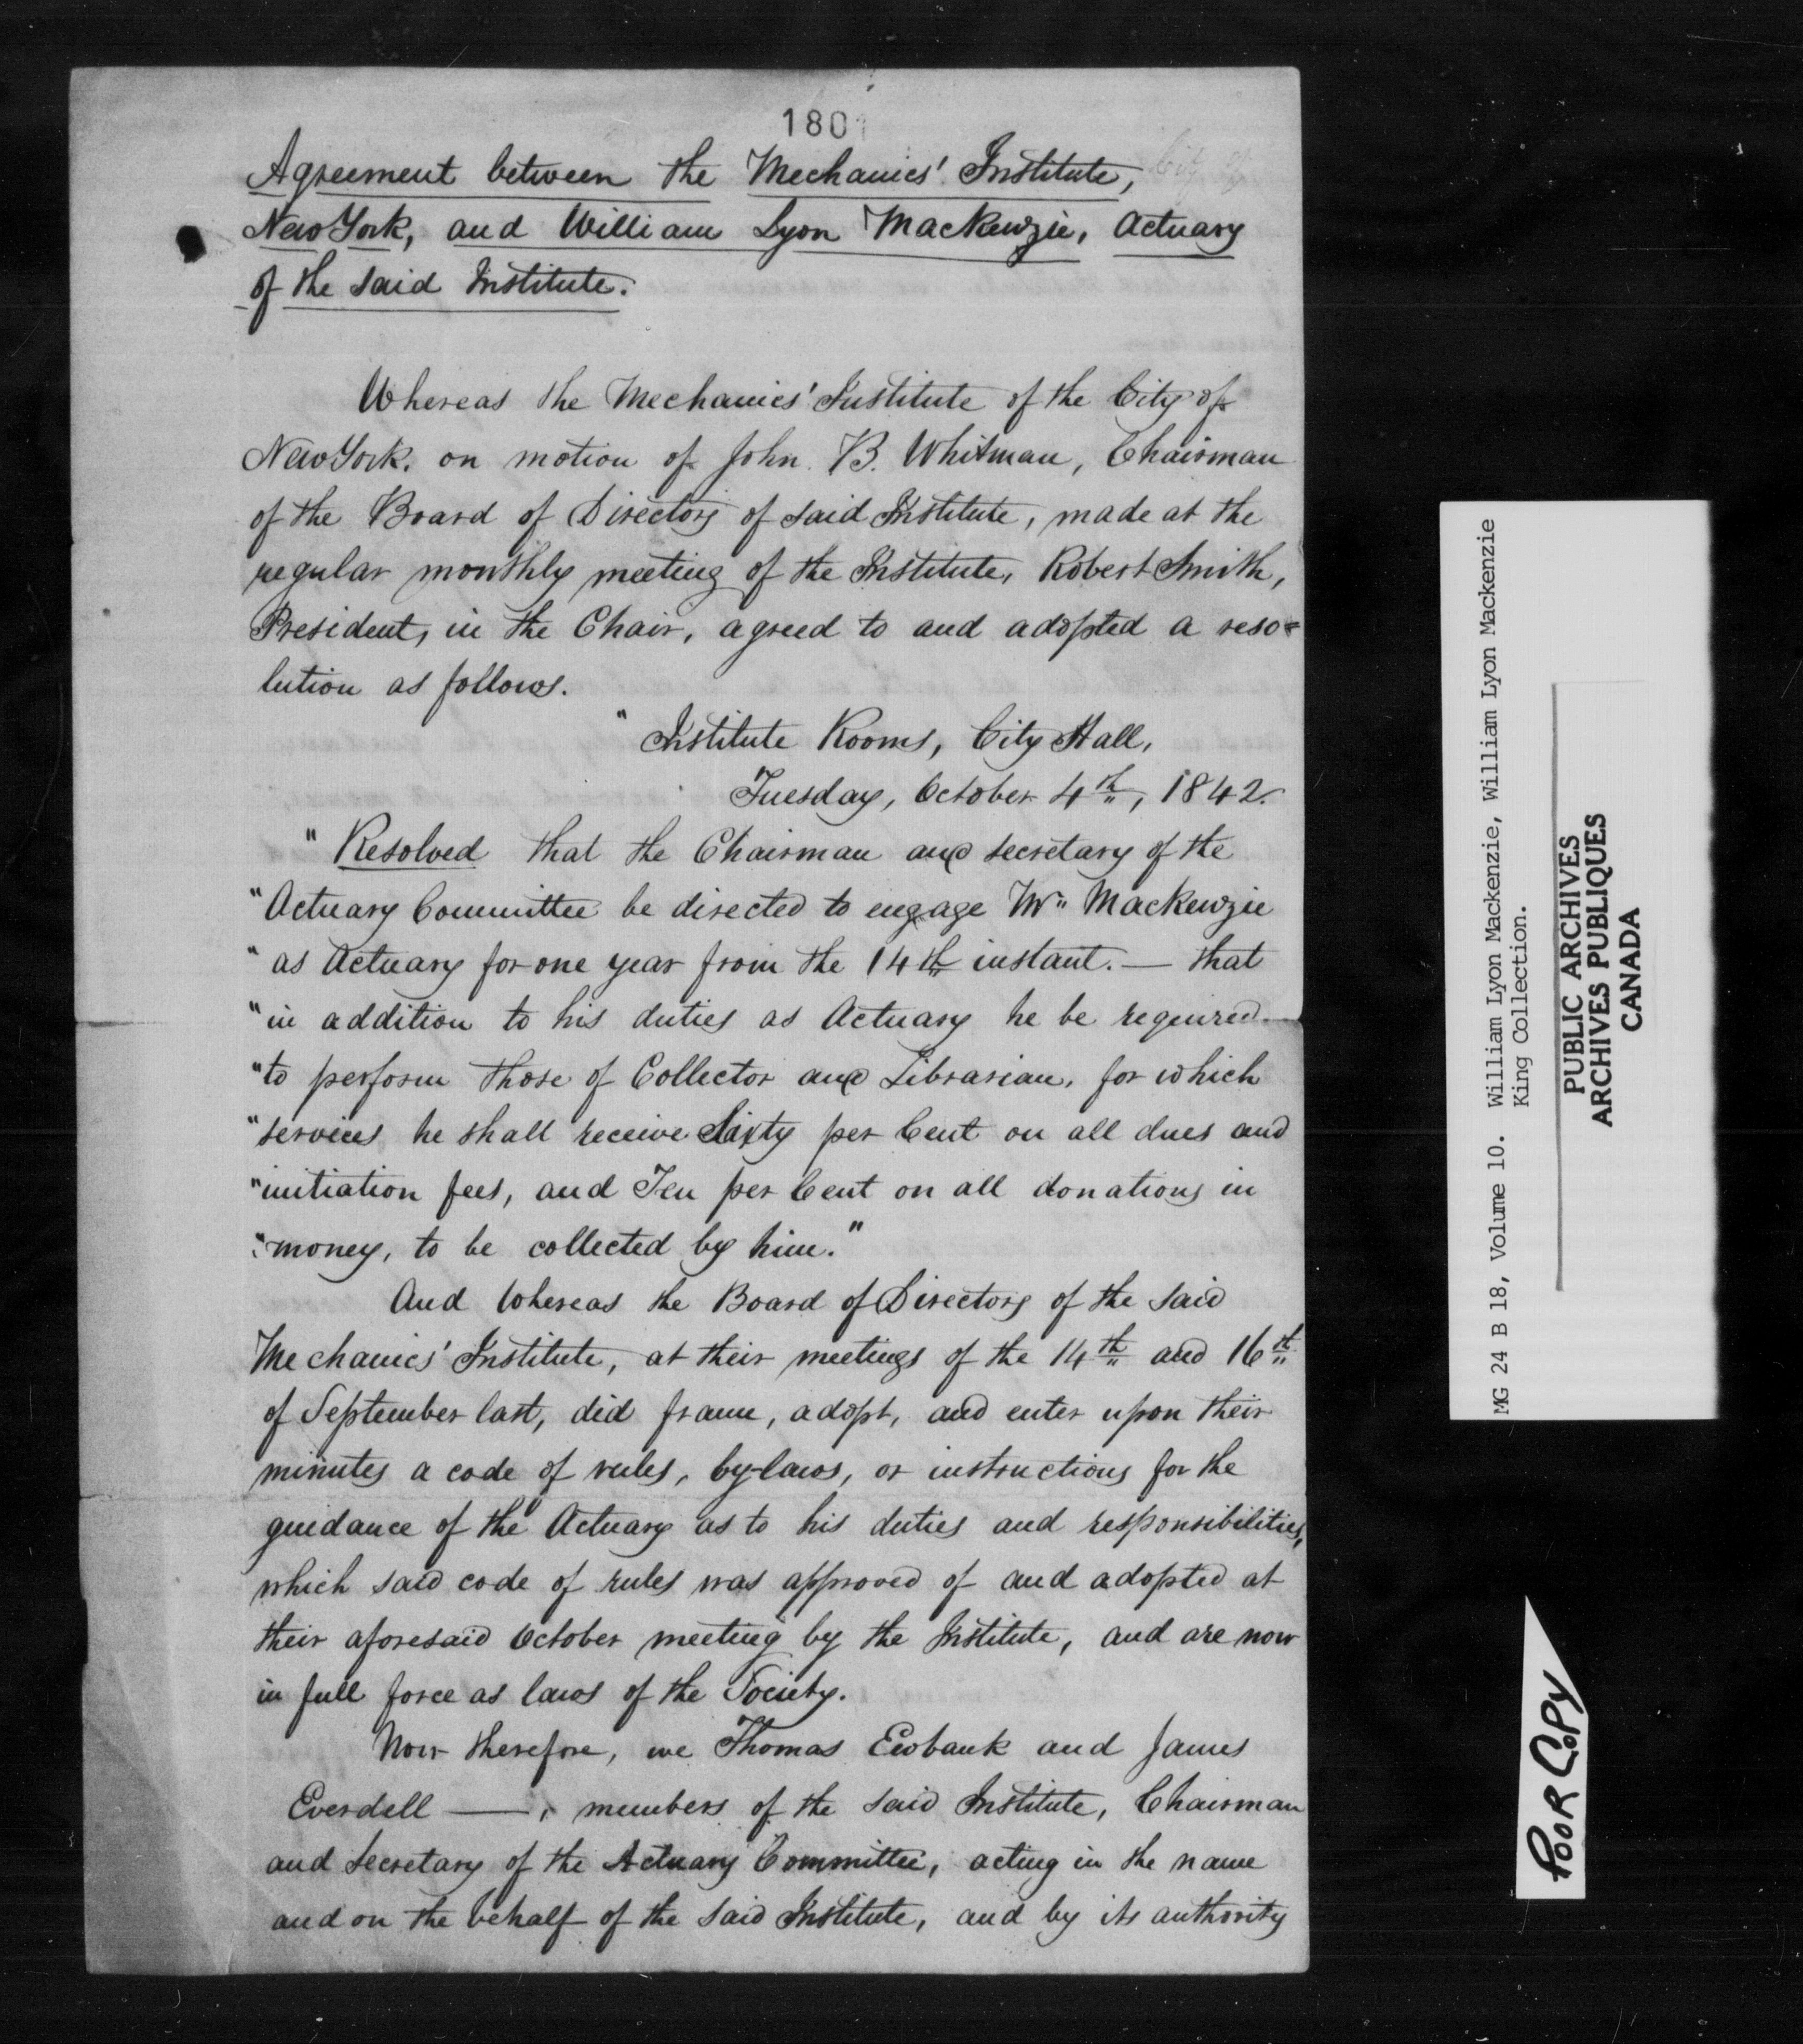 1801
Agreement between the Mechanics' Institute,
New York, and William Lyon Mackenzie, Actuary
of the said Institute.
Whereas the Mechanics' Institute of the City of
New York, on motion of John B. Whitman, Chairman
of the Board of Directors of said Institute, made at the
regular monthly meeting of the Institute, Robert Smith,
President, in the Chair, agreed to and adopted a reso=
lution as follows.
" Institute Rooms, City Hall,
Tuesday, October 4th, 1842.
" Resolved that the Chairman and secretary of the
" Actuary Committee be directed to engage Mr Mackenzie
" as Actuary for one year from the 14th instant. — that
" in addition to his duties as Actuary he be required
" to perform those of Collector and Librarian, for which
" services he shall receive Sixty per Cent on all dues and
" initiation fees, and Ten per Cent on all donations in
" money, to be collected by him."
And Whereas the Board of Directors of the said
Mechanics' Institute, at their meetings of the 14th and 16th
of September last, did frame, adopt, and enter upon their
minutes a code of rules, by-laws, or instructions for the
guidance of the Actuary as to his duties and responsibilities,
which said code of rules was approved of and adopted at
their aforesaid October meeting by the Institute, and are now
in full force as laws of the Society.
Now therefore, we Thomas Ewbank and James
Everdell —, members of the said Institute, Chairman
and Secretary of the Actuary Committee, acting in the name
and on the behalf of the said Institute, and by its authority
MG 24 B 18, Volume 10. William Lyon Mackenzie, William Lyon Mackenzie
King Collection.
PUBLIC ARCHIVES
ARCHIVES PUBLIQUES
CANADA
POOR COPY